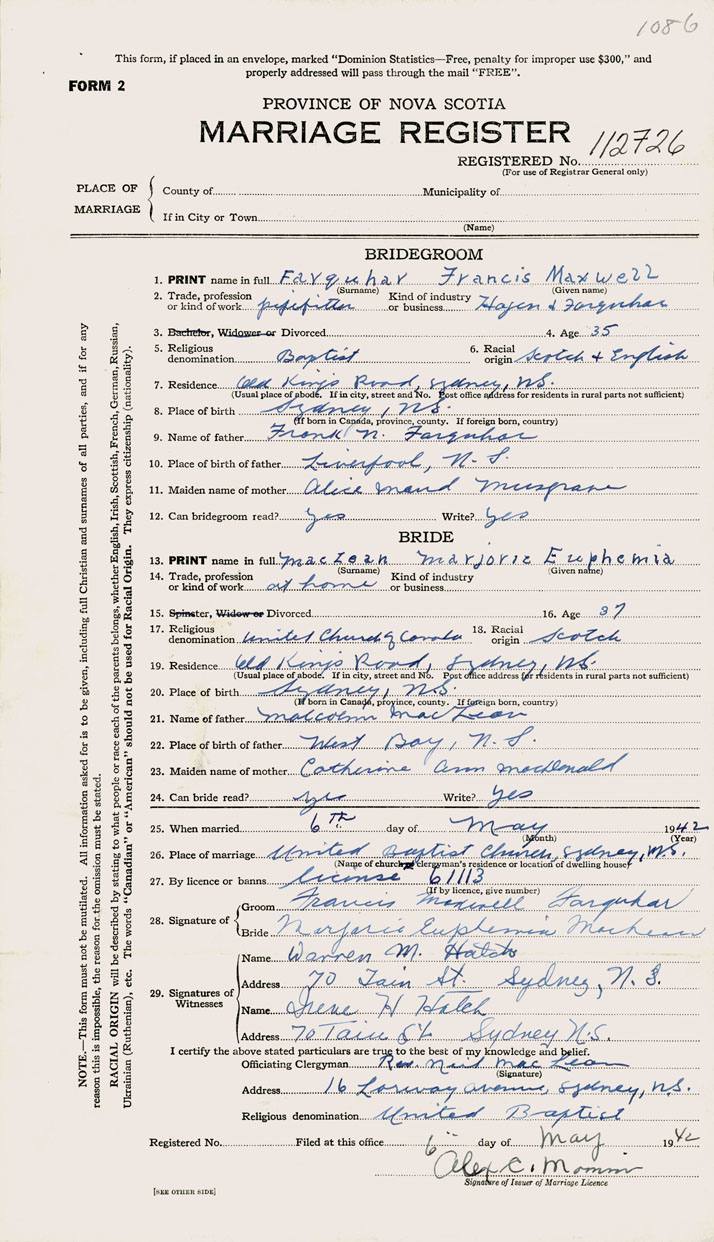 1086
This form, if placed in an envelope, marked "Dominion Statistics—Free, penalty for improper use $300," and
properly addressed will pass through the mail "FREE".
FORM 2
PROVINCE OF NOVA SCOTIA
MARRIAGE REGISTER
REGISTERED No. 112726
(For use of Registrar General only)
PLACE OF MARRIAGE
County of Municipality of
If in City or Town
(Name)
BRIDEGROOM
1. PRINT name in full Farquhar Francis Maxwell
(Surname) (Given name)
2. Trade, profession or kind of work pipefitter Kind of industry or business Hagen & Farquhar
3. Bachelor, Widower or Divorced 4. Age 35
5. Religious denomination Baptist 6. Racial origin Scotch & English
7. Residence Old Kings Road, Sydney, N.S.
(Usual place of abode. If in city, street and No. Post office address for residents in rural parts not sufficient)
8. Place of birth Sydney, N.S.
(If born in Canada, province, county. If foreign born, country)
9. Name of father Frank N. Farquhar
10. Place of birth of father Liverpool, N.S.
11. Maiden name of mother Alice Maud Musgrave
12. Can bridegroom read? Yes Write? Yes
BRIDE
13. PRINT name in full MacLean Marjorie Euphemia
(Surname) (Given name)
14. Trade, profession or kind of work at home Kind of industry or business
15. Spinster, Widow or Divorced 16. Age 37
17. Religious denomination United Church of Canada 18. Racial origin Scotch
19. Residence Old Kings Road, Sydney, N.S.
(Usual place of abode. If in city, street and No. Post office address for residents in rural parts not sufficient)
20. Place of birth Sydney, N.S.
(If born in Canada, province, county. If foreign born, country)
21. Name of father Malcolm MacLean
22. Place of birth of father West Bay, N.S.
23. Maiden name of mother Catherine Ann MacDonald
24. Can bride read? yes Write? Yes
25. When married 6TH day of May 1942
(Month) (Year)
26. Place of marriage United Baptist Church, Sydney, N.S.
(Name of church or clergyman's residence or location of dwelling house)
27. By licence or banns license 61113
(If by licence, give number)
28. Signature of
Groom Francis Maxwell Farquhar
Bride Marjorie Euphemia MacLean
29. Signatures of Witnesses
Name Warren M. Hatch
Address 70 Tain St. Sydney, N.S.
Name Irene H Hatch
Address 70 Tain St Sydney N.S.
I certify the above stated particulars are true to the best of my knowledge and belief.
Officiating Clergyman Rev. Neil MacLean
(Signature)
Address 16 Lorway Avenue, Sydney, N.S.
Religious denomination United Baptist
Registered No. Filed at this office 6" day of May 1942
Alex C.
Signature of Issuer of Marriage Licence
[SEE OTHER SIDE]
NOTE.—This form must not be mutilated. All information asked for is to be given, including full Christian and surnames of all parties, and if for any
reason this is impossible, the reason for the omission must be stated.
RACIAL ORIGIN will be described by stating to what people or race each of the parents belongs, whether English, Irish, Scottish, French, German, Russian,
Ukrainian (Ruthenian), etc. The words "Canadian" or "American" should not be used for Racial Origin. They express citizenship (nationality).